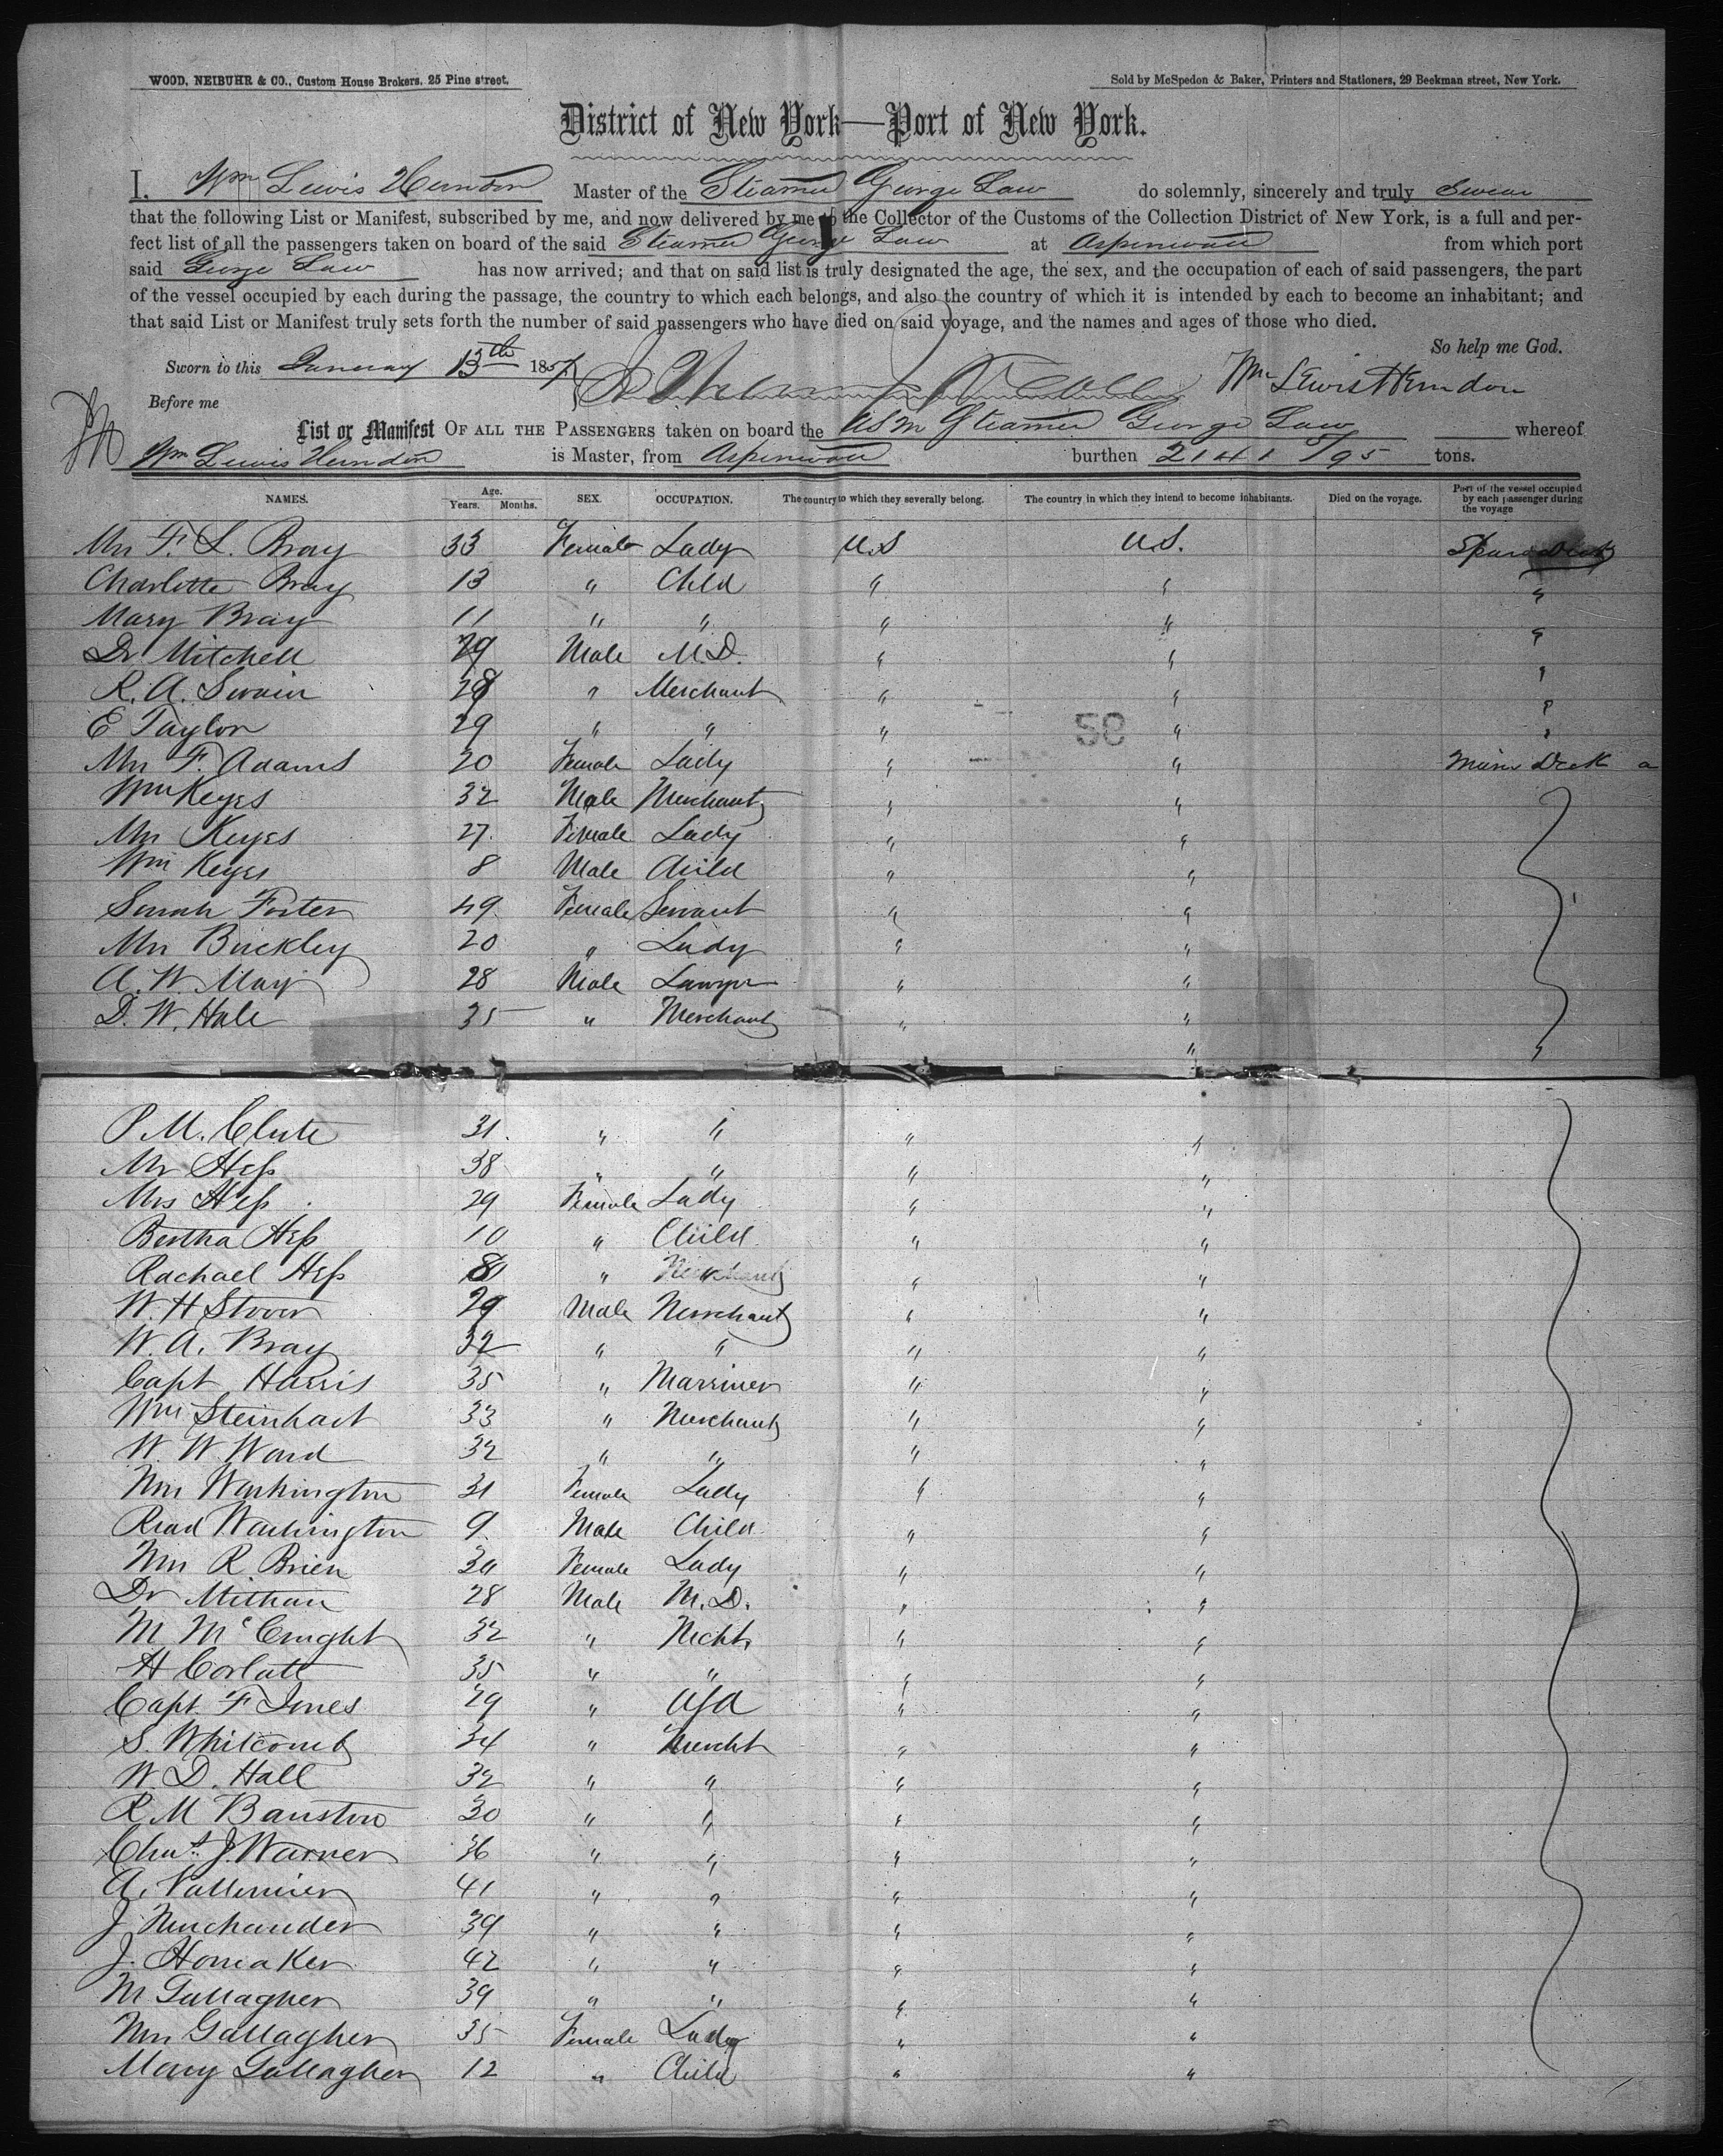 WOOD, NEIBUHR & CO., Custom House Brokers, 25 Pine street.
Sold by McSpedon & Baker, Printers and Stationers, 29 Beekman street, New York.
District of New York—Port of New York.
I, Wm Lewis Herndon Master of the Steamer George Law do solemnly, sincerely and truly Swear
that the following List or Manifest, subscribed by me, and now delivered by me to the Collector of the Customs of the Collection District of New York, is a full and per-
fect list of all the passengers taken on board of the said Steamer George Law at Aspinwall from which port
said George Law has now arrived; and that on said list is truly designated the age, the sex, and the occupation of each of said passengers, the part
of the vessel occupied by each during the passage, the country to which each belongs, and also the country of which it is intended by each to become an inhabitant; and
that said List or Manifest truly sets forth the number of said passengers who have died on said voyage, and the names and ages of those who died.
So help me God.
Sworn to this January 13th 1857. Wm Lewis Herndon
Before me
List or Manifest OF ALL THE PASSENGERS taken on board the USM Steamer George Law whereof
Wm Lewis Herndon is Master, from Aspinwall burthen 2141 5/95 tons.
NAMES. Age. Years. Months. SEX. OCCUPATION. The country to which they severally belong. The country in which they intend to become inhabitants. Died on the voyage. Part of the vessel occupied by each passenger during the voyage
Mrs F. L. Bray 33 Female Lady U.S U.S. Spare Deck
Charlotte Bray 13 " Child " " "
Mary Bray 11 " " " " "
Dr Mitchell 29 Male M.D. " " "
R. A. Swain 28 " Merchant " " "
E Taylor 29 " " " " "
Mrs F. Adams 20 Female Lady " " Main Deck a
58
Wm Keyes 32 Male Merchant " "
Mrs Keyes 27. Female Lady " "
Wm Keyes 8 Male Child " "
Sarah Foster 49. Female Servant " "
Mrs Buckley 20 " Lady " "
A. W. May 28 Male Lawyer " "
D. W. Hale 35 " Merchant " "
" "
P. M. Clute 31. " " " "
Mr Hess 38 " " " "
Mrs Hess 29 Female Lady " "
Bertha Hess 10 " Child " "
Rachael Hess 8 " Merchant " "
W. H Stover 29 Male Merchant " "
W. A. Bray 32 " " " "
Capt Harris 35 " Marriner " "
Wm Steinhart 33 " Merchant " "
W. W Ward 32 " " " "
Mrs Washington 31 Female Lady " "
Read Washington 9. Male Child " "
Mrs R. Brien 30 Female Lady " "
Dr 28 Male M.D. " "
M McCnught 32 " Mcht " "
H Corlatt 35 " " " "
Capt. F Jones 29 " USA " "
S. Whitcomb 34 " Mercht " "
W. D. Hall 32 " " " "
R. M Banston 30 " " " "
Chas. J. Warner 36 " " " "
A. 41 " " " "
J. 39 " " " "
J. Homaker 42 " " " "
M Gallagher 39 " " " "
Mrs Gallagher 35 Female Lady " "
Mary Gallagher 12 " Child " "